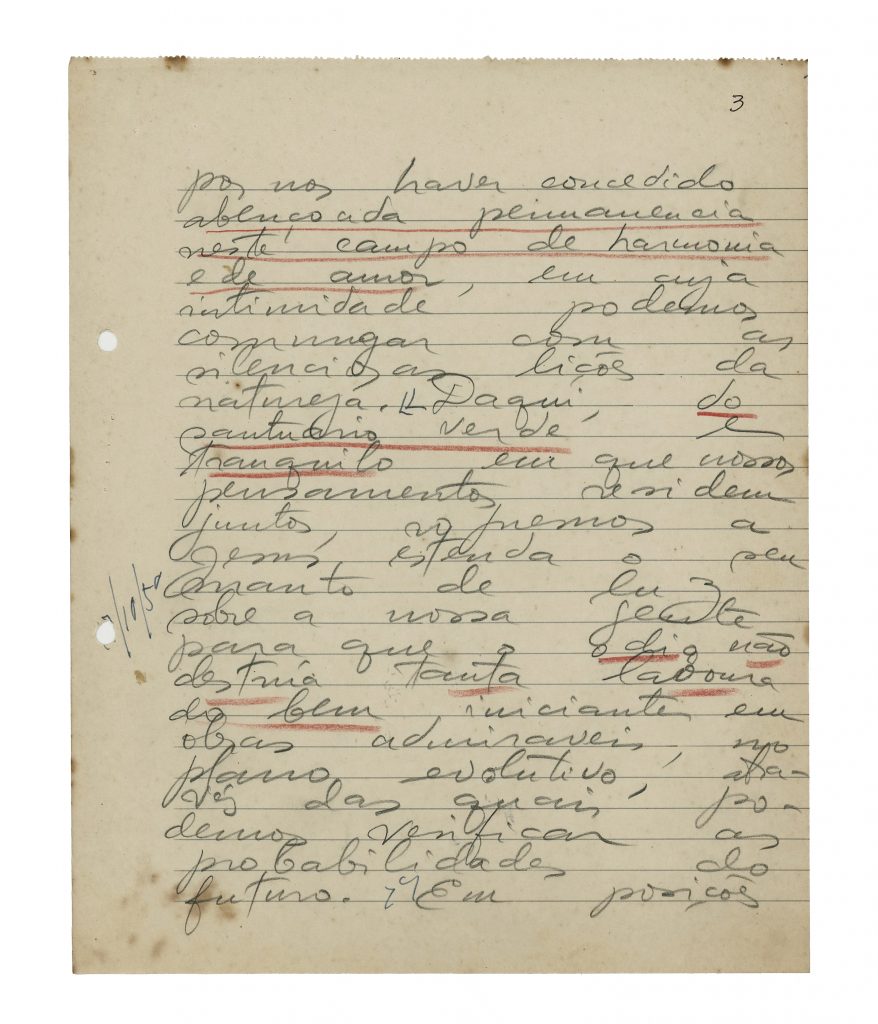 3
por nos haver concedido
abençoada permanencia
neste campo de harmonia
e de amor, em cuja
intimidade podemos
comungar com as
silenciosas lições da
natureza. Daqui, do
santuario verde e
tranquilo em que nossos
pensamentos residem
juntos, roguemos a
Jesus, estenda o seu
manto de luz
sobre a nossa gente
para que o odio não
destrúa tanta lavoura
do bem, iniciante em
obras admiraveis, no
plano evolutivo, atra-
vés das quais, po-
demos verificar as
probabilidades do
futuro. Em posições
/10/50